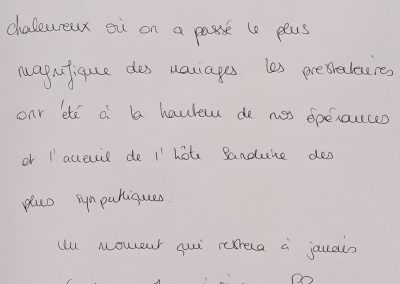 chaleureux où on a passé le plus
magnifique des mariages. les prestataires
ont été à la hauteur de nos épérances
et l'accueil de l'hôte Sandrine des
plus sympatiques.
Un moment qui restera à jamais